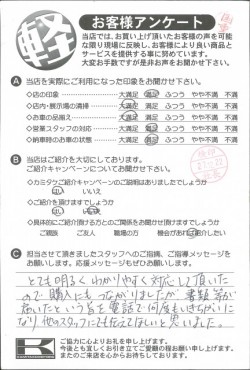 軽
お客様アンケート
当店では、お買い上げ頂いたお客様の声を可能
な限り現場に反映し、お客様により良い商品と
サービスを提供する事に努めています。
大変お手数ですが是非お声をお聞かせ下さい。
A 当店を実際にご利用になった印象をお聞かせ下さい。
◇店の印象 大満足 満足 ふつう やや不満 不満
◇店内・展示場の清掃 大満足 満足 ふつう やや不満 不満
◇お車の品揃え 大満足 満足 ふつう やや不満 不満
◇営業スタッフの対応 大満足 満足 ふつう やや不満 不満
◇納車時のお車の状態 大満足 満足 ふつう やや不満 不満
B 当店はご紹介を大切にしております。
ご紹介についてお聞かせ下さい。
◇カミタケご紹介キャンペーンのご説明はありましたでしょうか
はい いいえ
◇ご紹介を頂けますでしょうか
はい いいえ
◇具体的にご紹介頂ける方とのご関係をお聞かせ頂けますでしょうか
ご親族 ご友人 職場の方 機会があれば紹介したい
C 担当させて頂きましたスタッフへのご指摘、ご指導メッセージを
お願いします。応援メッセージもぜひお願いします。
とても明るくわかりやすく対応して頂いた
ので購入にもつながりましたが、書類等が
届いたという旨を電話で何度もいきちがいに
なり、他のスタッフにも伝えてほしいと思いました。
ご協力に心よりお礼を申し上げます。
今後とも宜しくお引き立てご愛顧の程お願い申し上げます。
またのご来店を心よりお待ちしております。